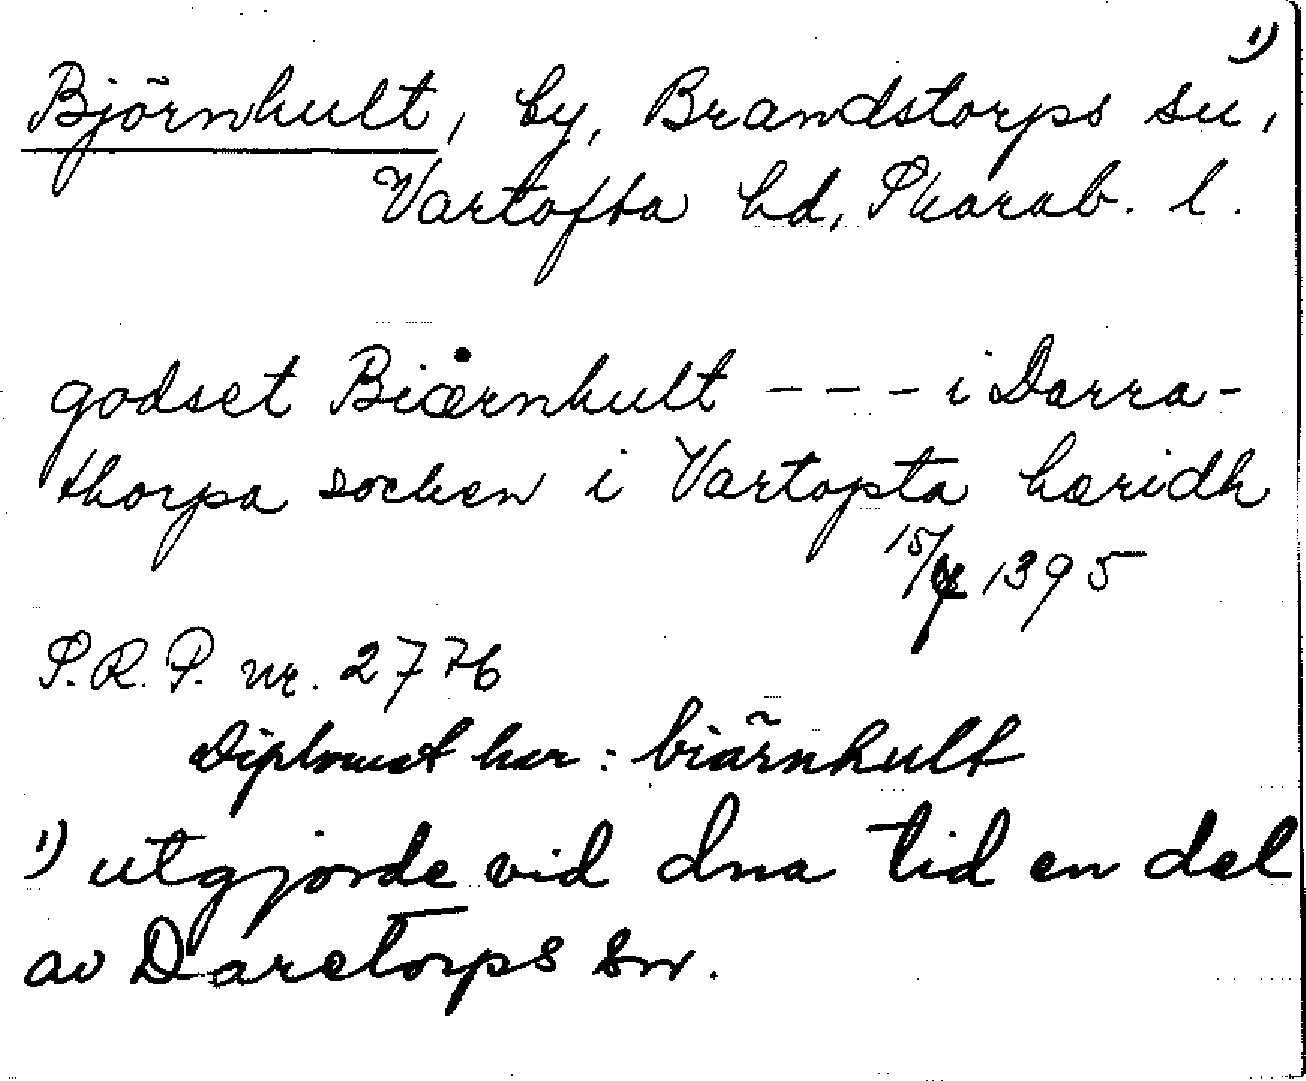 1)
Björnhult, by, Brandstorps sn,
Vartofta hd, Skarab. l.
godset Biærnhult - - - i Darra-
thorpa socken i Vartopta hæridh
15/4 1395
S.R.P. nr. 2776
Diplomet har: biärnhult
1) utgjorde vid dna tid en del
av Daretorps sn.